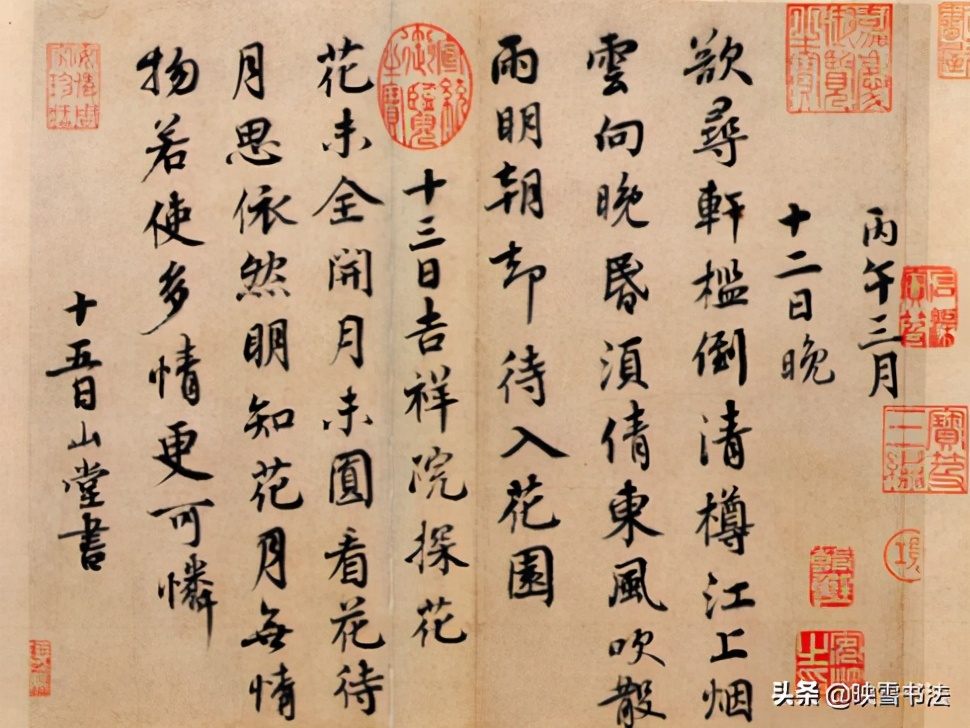 丙午三月
十二日晚
欲尋軒檻倒清樽江上烟
雲向晚昏須倩東風吹散
雨明朝却待入花園
十三日吉祥院探花
花未全開月未圓看花待
月思依然明知花月無情
物若使多情更可憐
十五日山堂書
嘉慶御覽之寶
宣統御覽之寶
头条 @映雪书法